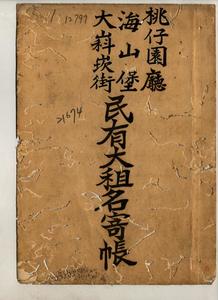 桃仔園廳
海山堡
大嵙崁街
民有大租名寄帳
12797
21674